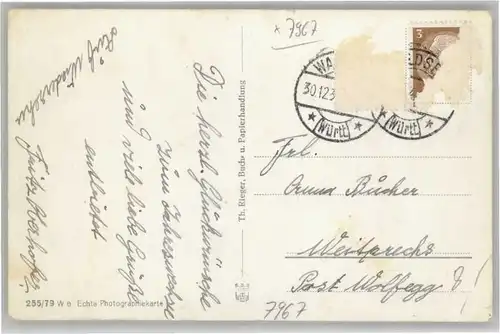 * 7967
3
WA DSE
30.12.3
(Württ) (Württ)
Die herzl. Glückwünsche
zum Jahreswechsel
und viele liebe Grüße
entbietet
Fritz
Auf Wiedersehn
Th. Rieger, Buch- u. Papierhandlung
Frl.
Anna Bücher
Weitprechts
Post Wolfegg
7967
255/79 W e Echte Photographiekarte